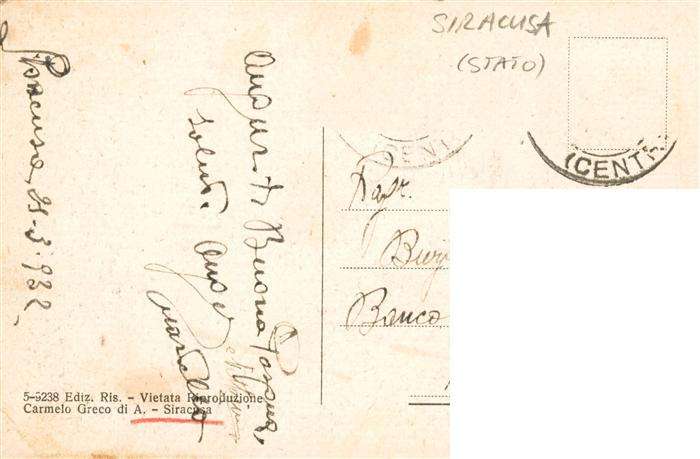 SIRACUSA
(STATO)
(CENTR
(CENT
Siracusa, 21-3-932
Auguri di Buona Pasqua,
saluti
Rag.
Banco
5-9238 Ediz. Ris. - Vietata Riproduzione
Carmelo Greco di A. - Siracusa